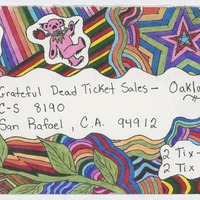 Grateful Dead Ticket Sales – Oakla
C-S 8190
San Rafael, C.A. 94912
2 Tix –
2 Tix